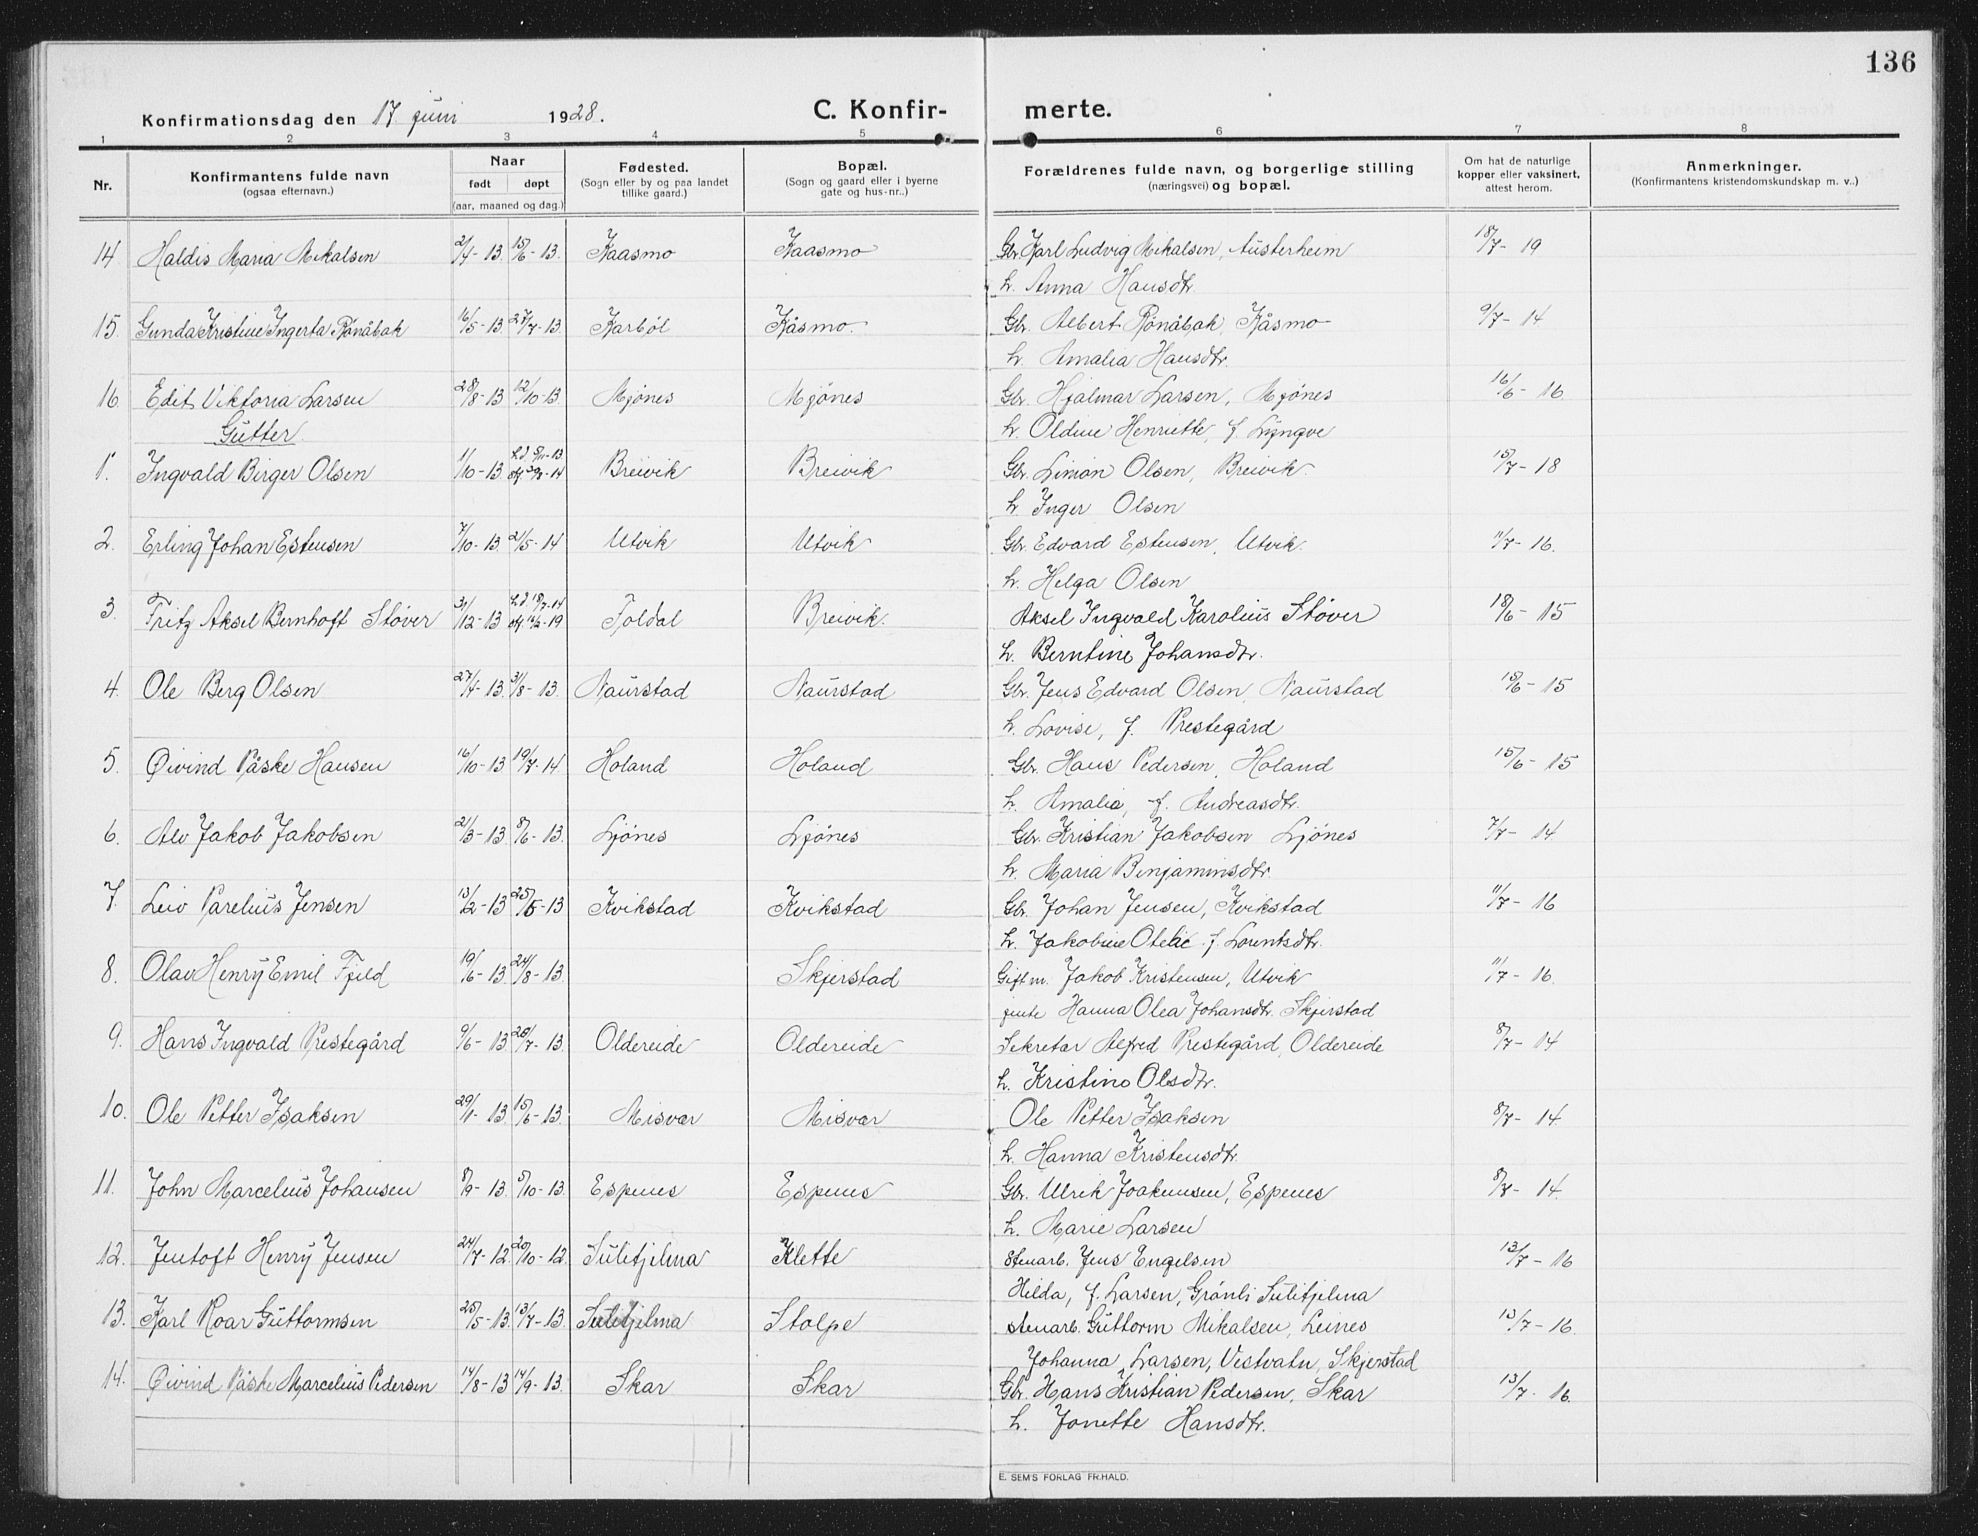 136
Konfirmationsdag den 17 juni 1928. C. Konfir- merte.
1 2 3 4 5 6 7 8
Nr. Konfirmantens fulde navn (ogsaa efternavn.) Naar født døpt (aar, maaned og dag.) Fødested. (Sogn eller by og paa landet tillike gaard.) Bopæl. (Sogn og gaard eller i byerne gate og hus-nr..) Forældrenes fulde navn, og borgerlige stilling (næringsvei) og bopæl. Om hat de naturlige kopper eller vaksinert, attest herom. Anmerkninger. (Konfirmantens kristendomskundskap m. v..)
14 Haldis Maria Mikalsen 2/4-13 15/6-13 Kaasmo Kaasmo Gbr. Karl Ludvig Mikalsen, Austerheim 18/7-19
h. Anna Hansdtr.
15. Gunda Kristine Ingerta Rønåbak 16/5-13 27/7-13 Karbøl Kåsmo. Gbr. Albert Rønåbak, Kåsmo 9/7-14
h. Amalia Hansdtr.
16. Edit Viktoria Larsen 28/8-13 12/10-13 Mjönes Mjönes Gbr. Hjalmar Larsen, Mjönes 16/6-16
Gutter. h. Oldine Henriette, f. Lyngve
1. Ingvald Birger Olsen 1/10-13 Breivik Breivik Gbr. Simon Olsen, Breivik 15/7-18
h. Inger Olsen
2. Erling Johan Estensen 7/10-13 21/5-14 Utvik Utvik Gbr. Edvard Estensen, Utvik. 11/7-16.
h. Helga Olsen
3. Fritz Aksel Bernhoft Støver 31/12-13 Foldal Breivik. Aksel Ingvald Karolius Støver 18/6-15
h. Berntine Johansdtr.
4. Ole Berg Olsen 27/4-13 31/8-13. Naurstad Naurstad Gbr. Jens Edvard Olsen, Naurstad 15/6-15
h. Lovise, f. Prestegård
5. Øivind Påske Hansen 16/10-13 19/7-14 Holand Holand Gbr. Hans Pedersen, Holand 15/6-15
h. Amalia, f. Andreasdtr.
6. Alv Jakob Jakobsen 21/3-13 8/6-13. Ljönes Ljönes Gbr. Kristian Jakobsen Ljönes 7/7-14
h. Maria Benjaminsdtr.
7. Leiv Parelius Jensen 13/2-13 25/5-13 Kvikstad Kvikstad Gbr. Johan Jensen, Kvikstad 11/7-16
h. Jakobine Otelie f. Lorentsdtr.
8. Olav Henry Emil Fjeld 19/6-13 24/8-13. Skjerstad Gift m. Jakob Kristensen, Utvik 11/7-16.
jente Hanna Olea Johansdtr. Skjerstad
9. Hans Ingvald Prestegård 9/6-13 20/7-13. Oldereide Oldereide Sekretær Alfred Prestegård, Oldereide 8/7-14
h. Kristine Olsdtr.
10. Ole Petter Isaksen 29/1-13 15/6-13. Misvær Misvær Ole Petter Isaksen 8/7-14
h. Hanna Kristensdtr.
11. John Marcelius Johansen 8/9-13 5/10-13. Espenes Espenes Gbr. Ulrik Joakimsen, Espenes 8/7-14.
h. Marie Larsen
12. Jentoft Henry Jensen 24/7-12 20/10-12 Sulitjelma Klette Stenarb. Jens Engelsen 13/7-16
Hilda, f. Larsen, Grønli Sulitjelma
13. Karl Roar Guttormsen 25/5-13. 13/7-13. Sulitjelma Stolpe Stenarb. Guttorm Mikalsen, Leines 13/7-16.
Johanna Larsen, Vestvatn, Skjerstad
14. Øivind Påske Marcelius Pedersen 14/8-13 14/9-13. Skar Skar Gbr. Hans Kristian Pedersen, Skar 13/7-16.
h. Jonette Hansdtr.
E. SEM'S FORLAG FR.HALD.